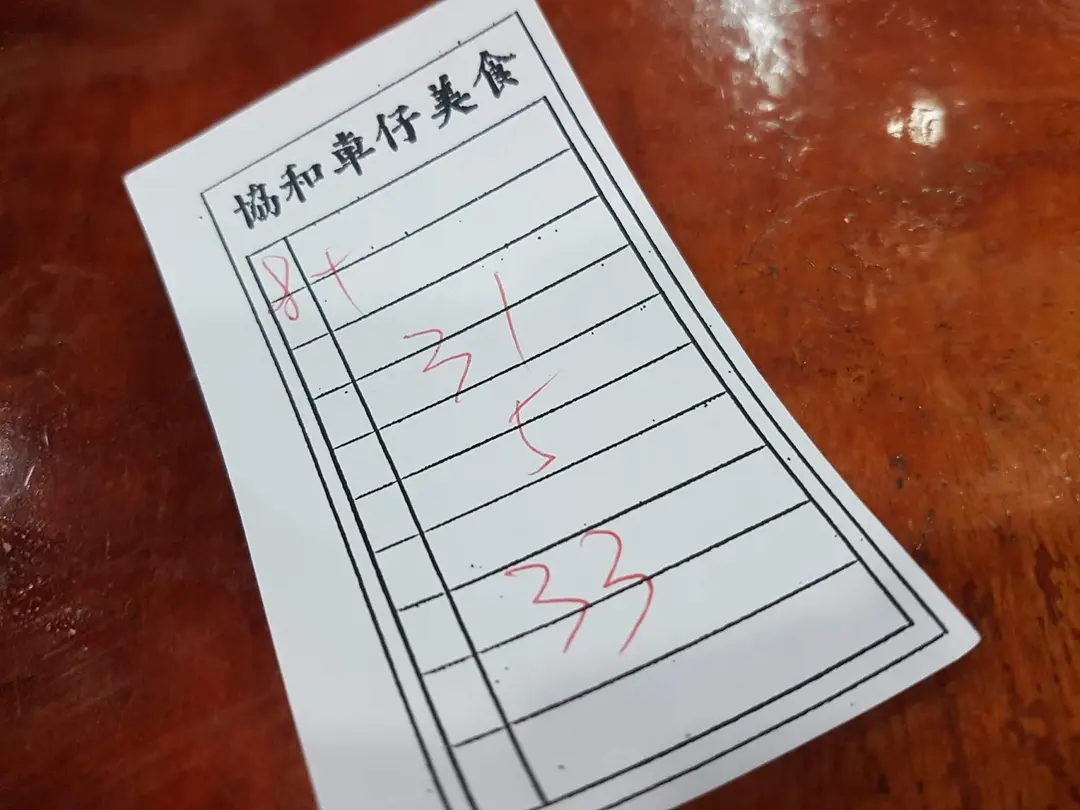 協和車仔美食
8+
31
5
33